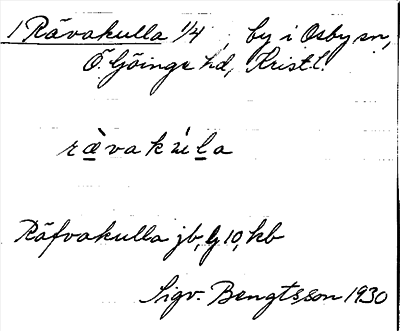 1 Rävakulla 1/4, by i Osby sn,
Ö. Göinge hd, Krist. l.
rævakùla
Räfvakulla jb, lg 10, kb
Sigv. Bengtsson 1930